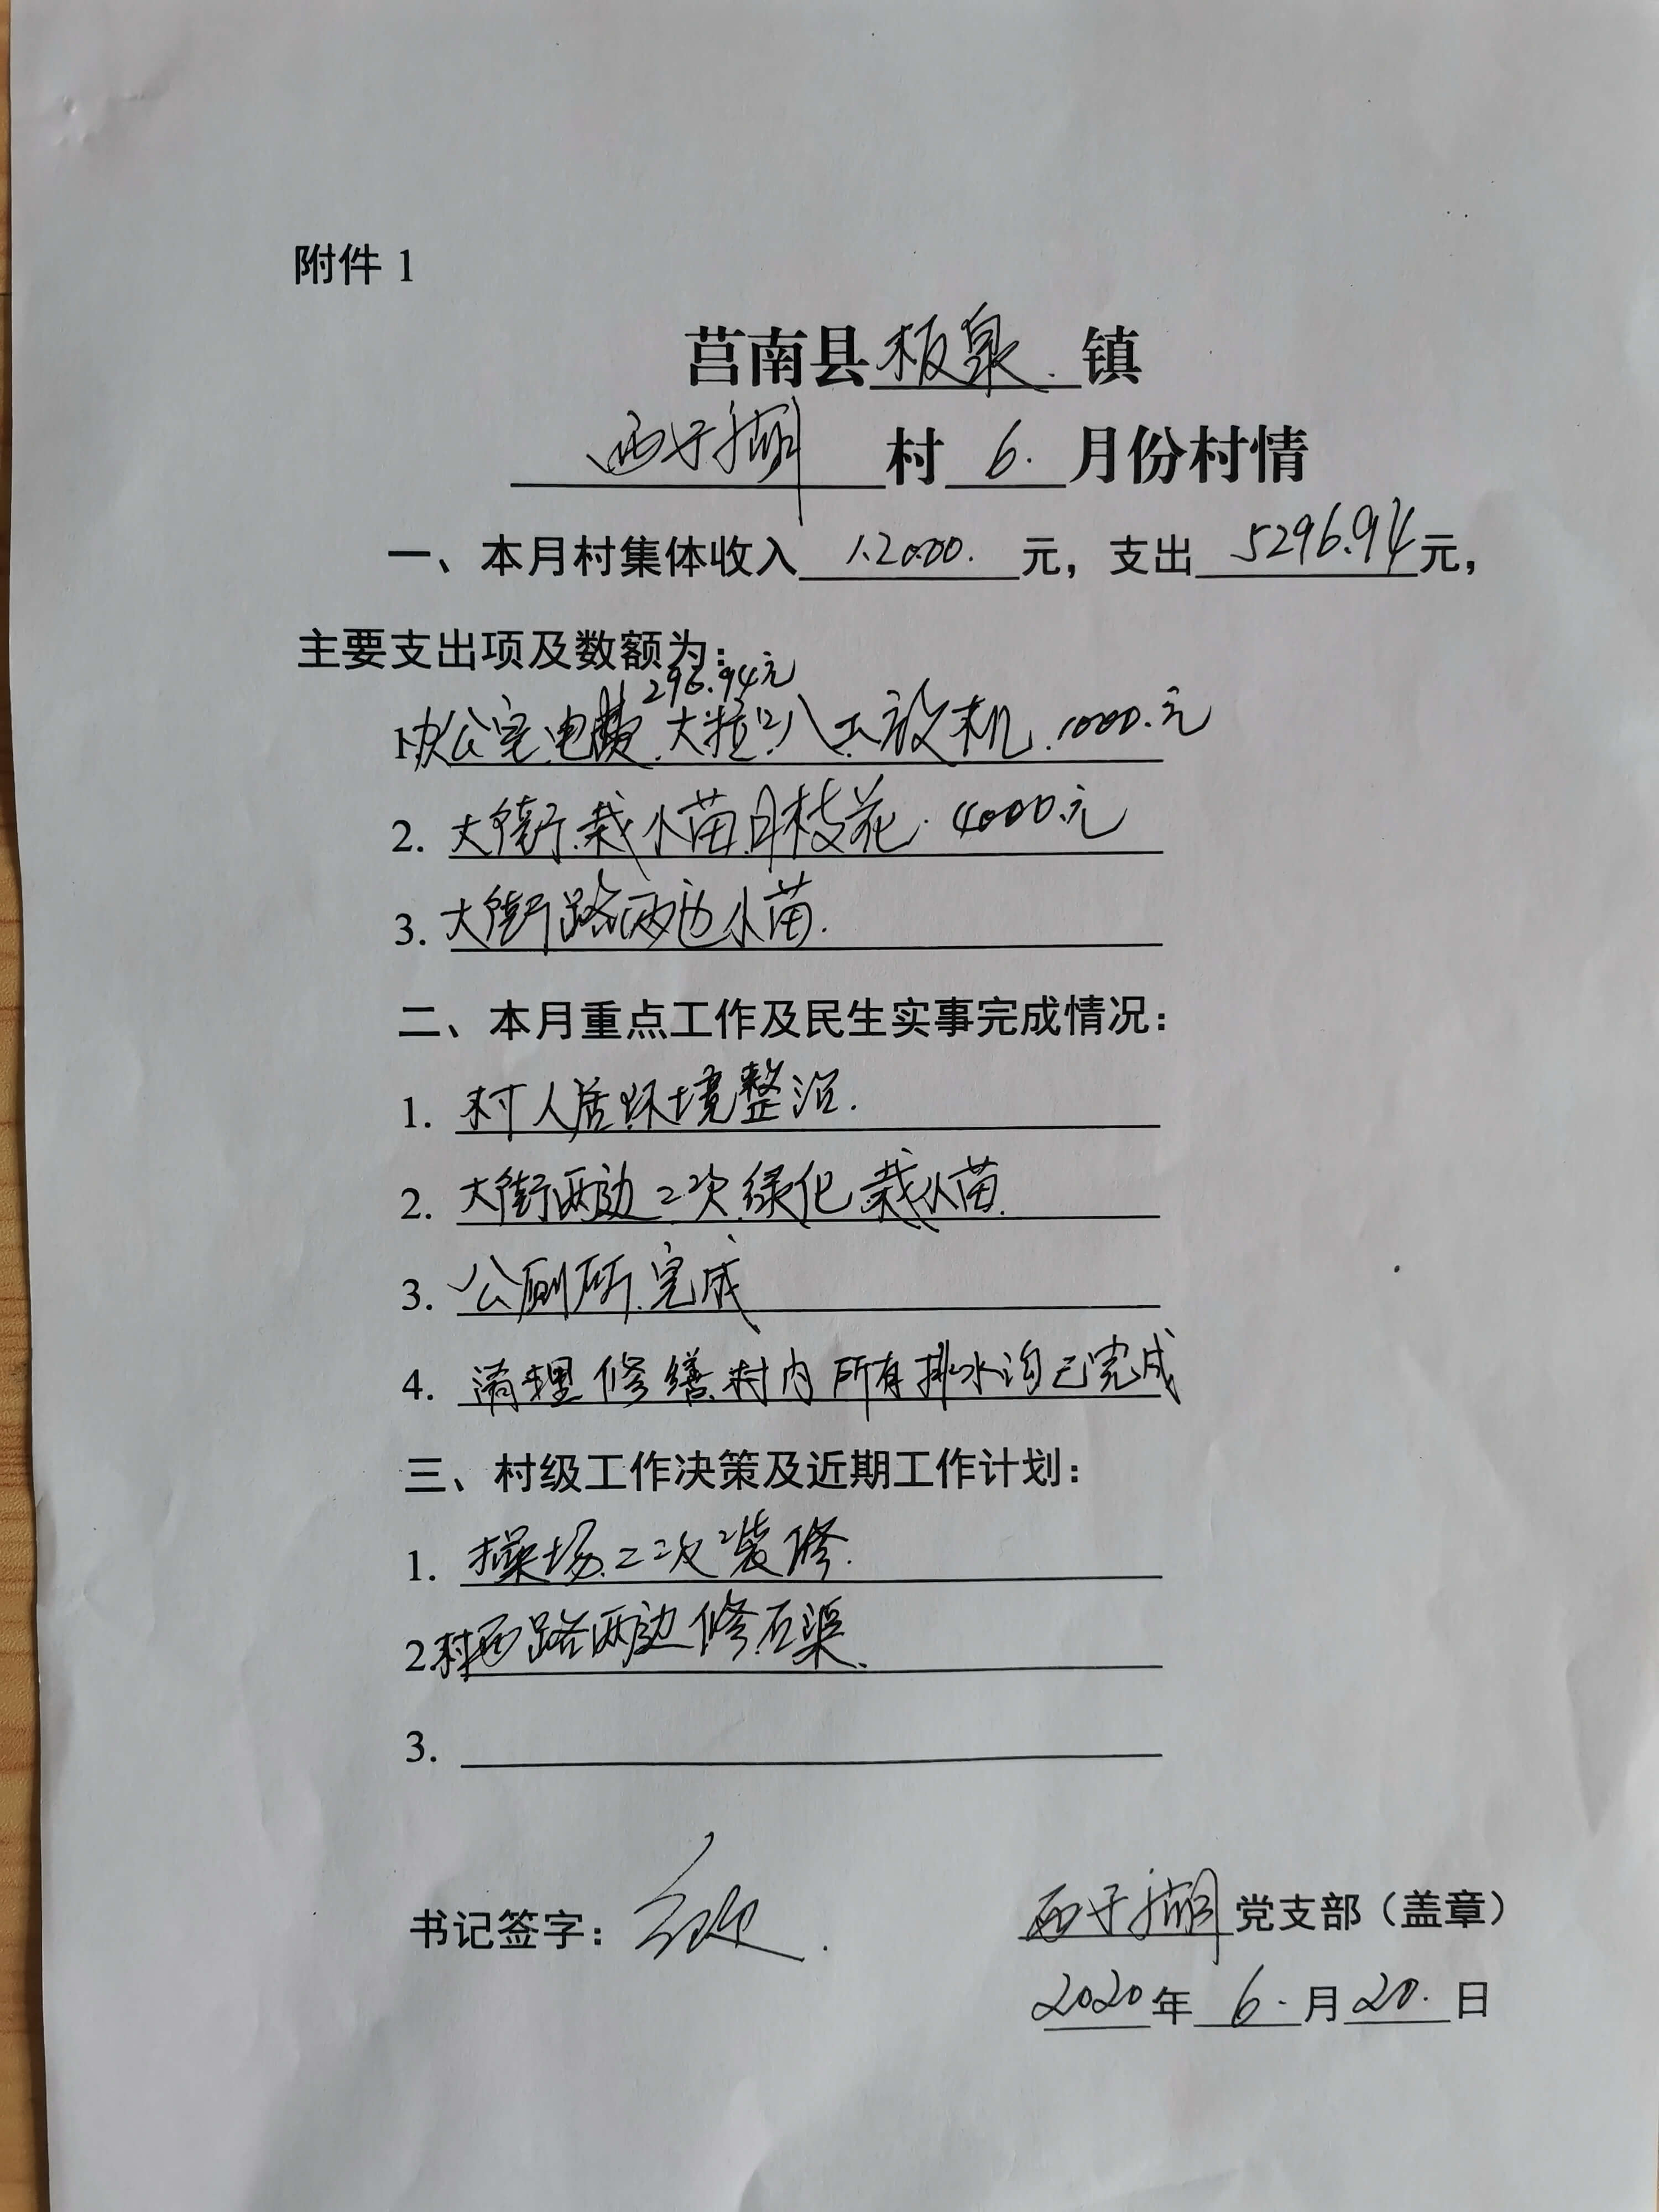 附件 1
莒南县板泉镇
西于湖村 6. 月份村情
一、本月村集体收入 12000. 元，支出 5296.94 元，
主要支出项及数额为：
296.94元
1. 办公室电费.大粒叭 放机.1000.元
2. 大街.栽小苗月枝花.4000.元
3. 大街路两边小苗.
二、本月重点工作及民生实事完成情况：
1. 村人居环境整治.
2. 大街两边二次绿化栽小苗.
3. 公厕所.完成
4. 清理修缮村内所有排水沟已完成
三、村级工作决策及近期工作计划：
1. 操场二次装修.
2. 村西路两边修石渠.
3.
书记签字：
西于湖党支部（盖章）
2020年 6. 月 20. 日